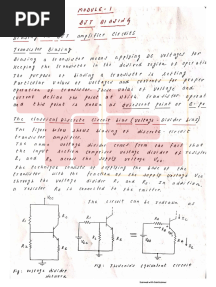 PDF
MODULE-1
BJT BIASING
Biasing in BJT amplifier circuits
Transistor Biasing
Biasing a transistor means applying DC voltages for
keeping the transistor in the desired region of operation
The purpose of biasing a transistor is setting
particular values of voltages and currents for proper
operation of transistor. These value of voltage and
current define the point at which transistor operates
and this point is known as quiescent point or Q-point
The classical discrete circuit bias (voltage divider bias)
The figure below shows biasing of discrete circuit
transistor amplifier.
The name voltage divider comes from the fact that
the input section comprises voltage divider of resistors
R1 and R2 across the supply voltage Vcc
The technique consists of supplying the base of the
transistor with the fraction of the supply voltage Vcc
through the voltage divider R1 and R2. In addition,
a resistor RE is connected to the emitter.
The circuit can be redrawn as
Fig: Voltage divider
network
Fig: Thevenin's equivalent circuit